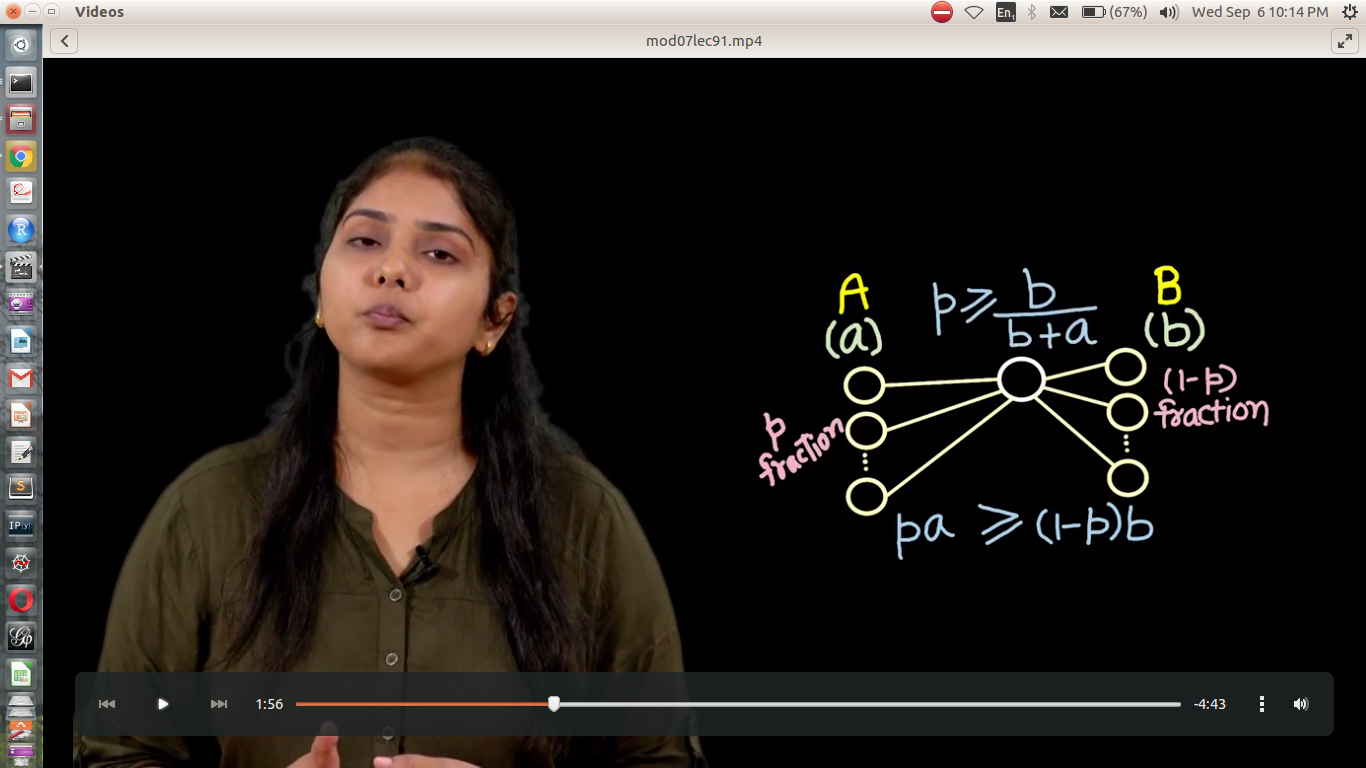 Videos
En1
(67%)
Wed Sep 6 10:14 PM
mod07lec91.mp4
A
(a)
p ⩾ b/b+a
B
(b)
p fraction
(1-p) fraction
pa ⩾ (1-p)b
1:56
-4:43
R
S
IP[y]: